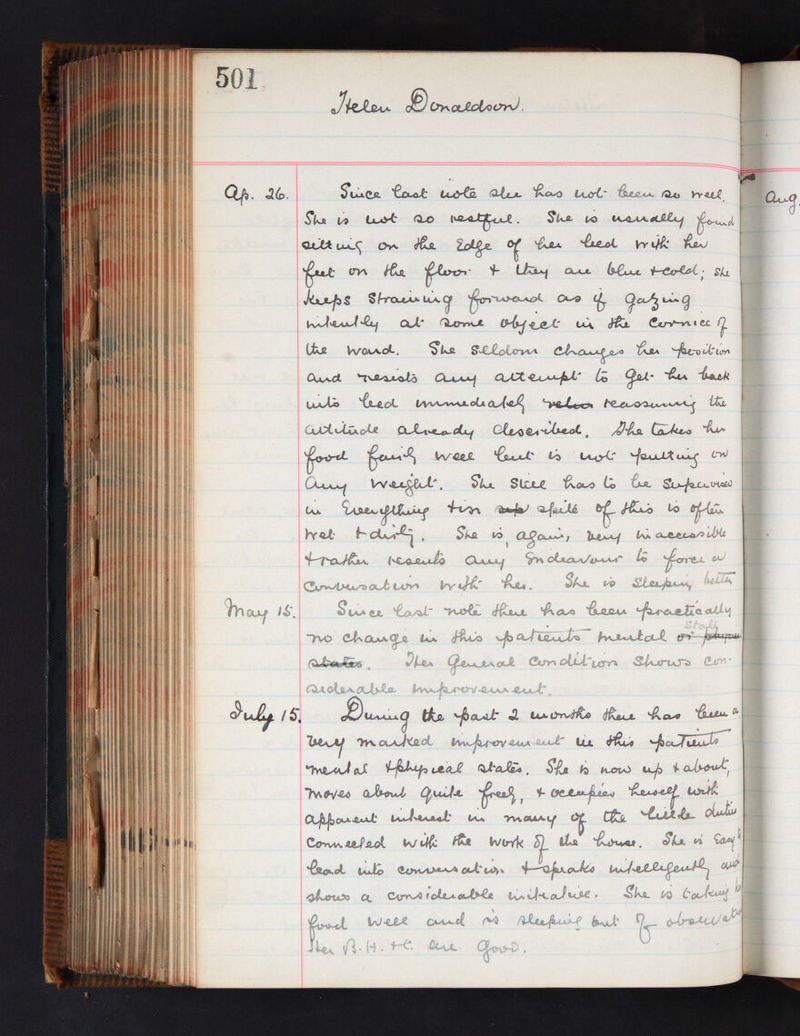 501
Helen Donaldson.
Ap. 26. Since last note she has not been so well.
She is not so restful. She is usually found
sitting on the Edge of her bed with her
feet on the floor & they are blue & cold; she
keeps straining forward as if gazing
intently at some object in the cornice of
the ward. She seldom changes her position
and resists any attempt to get her back
into bed immediately reassuming the
attitude already described. She takes her
food fairly well but is not putting on
any weight. She still has to be supervised
in Everything & in spite of this is often
wet & dirty. She is, again, very inaccessible
& rather resents any Endeavour to force a
conversation with her. She is sleeping better
May 15. Since last note there has been practically
no change in this patients mental
state
states. Her General condition shows con-
siderable improvement.
July 15. During the past 2 months there has been a
very marked improvement in this patients
mental & physical states. She is now up & about,
moves about quite freely, & occupies herself with
apparent interest in many of the little duties
connected with the work of the house. She is Easy to
lead into conversation & speaks intelligently and
shows a considerable initiative. She is taking her
food well and is sleeping but of observation
Her B.H. & C. are Good.
Aug.